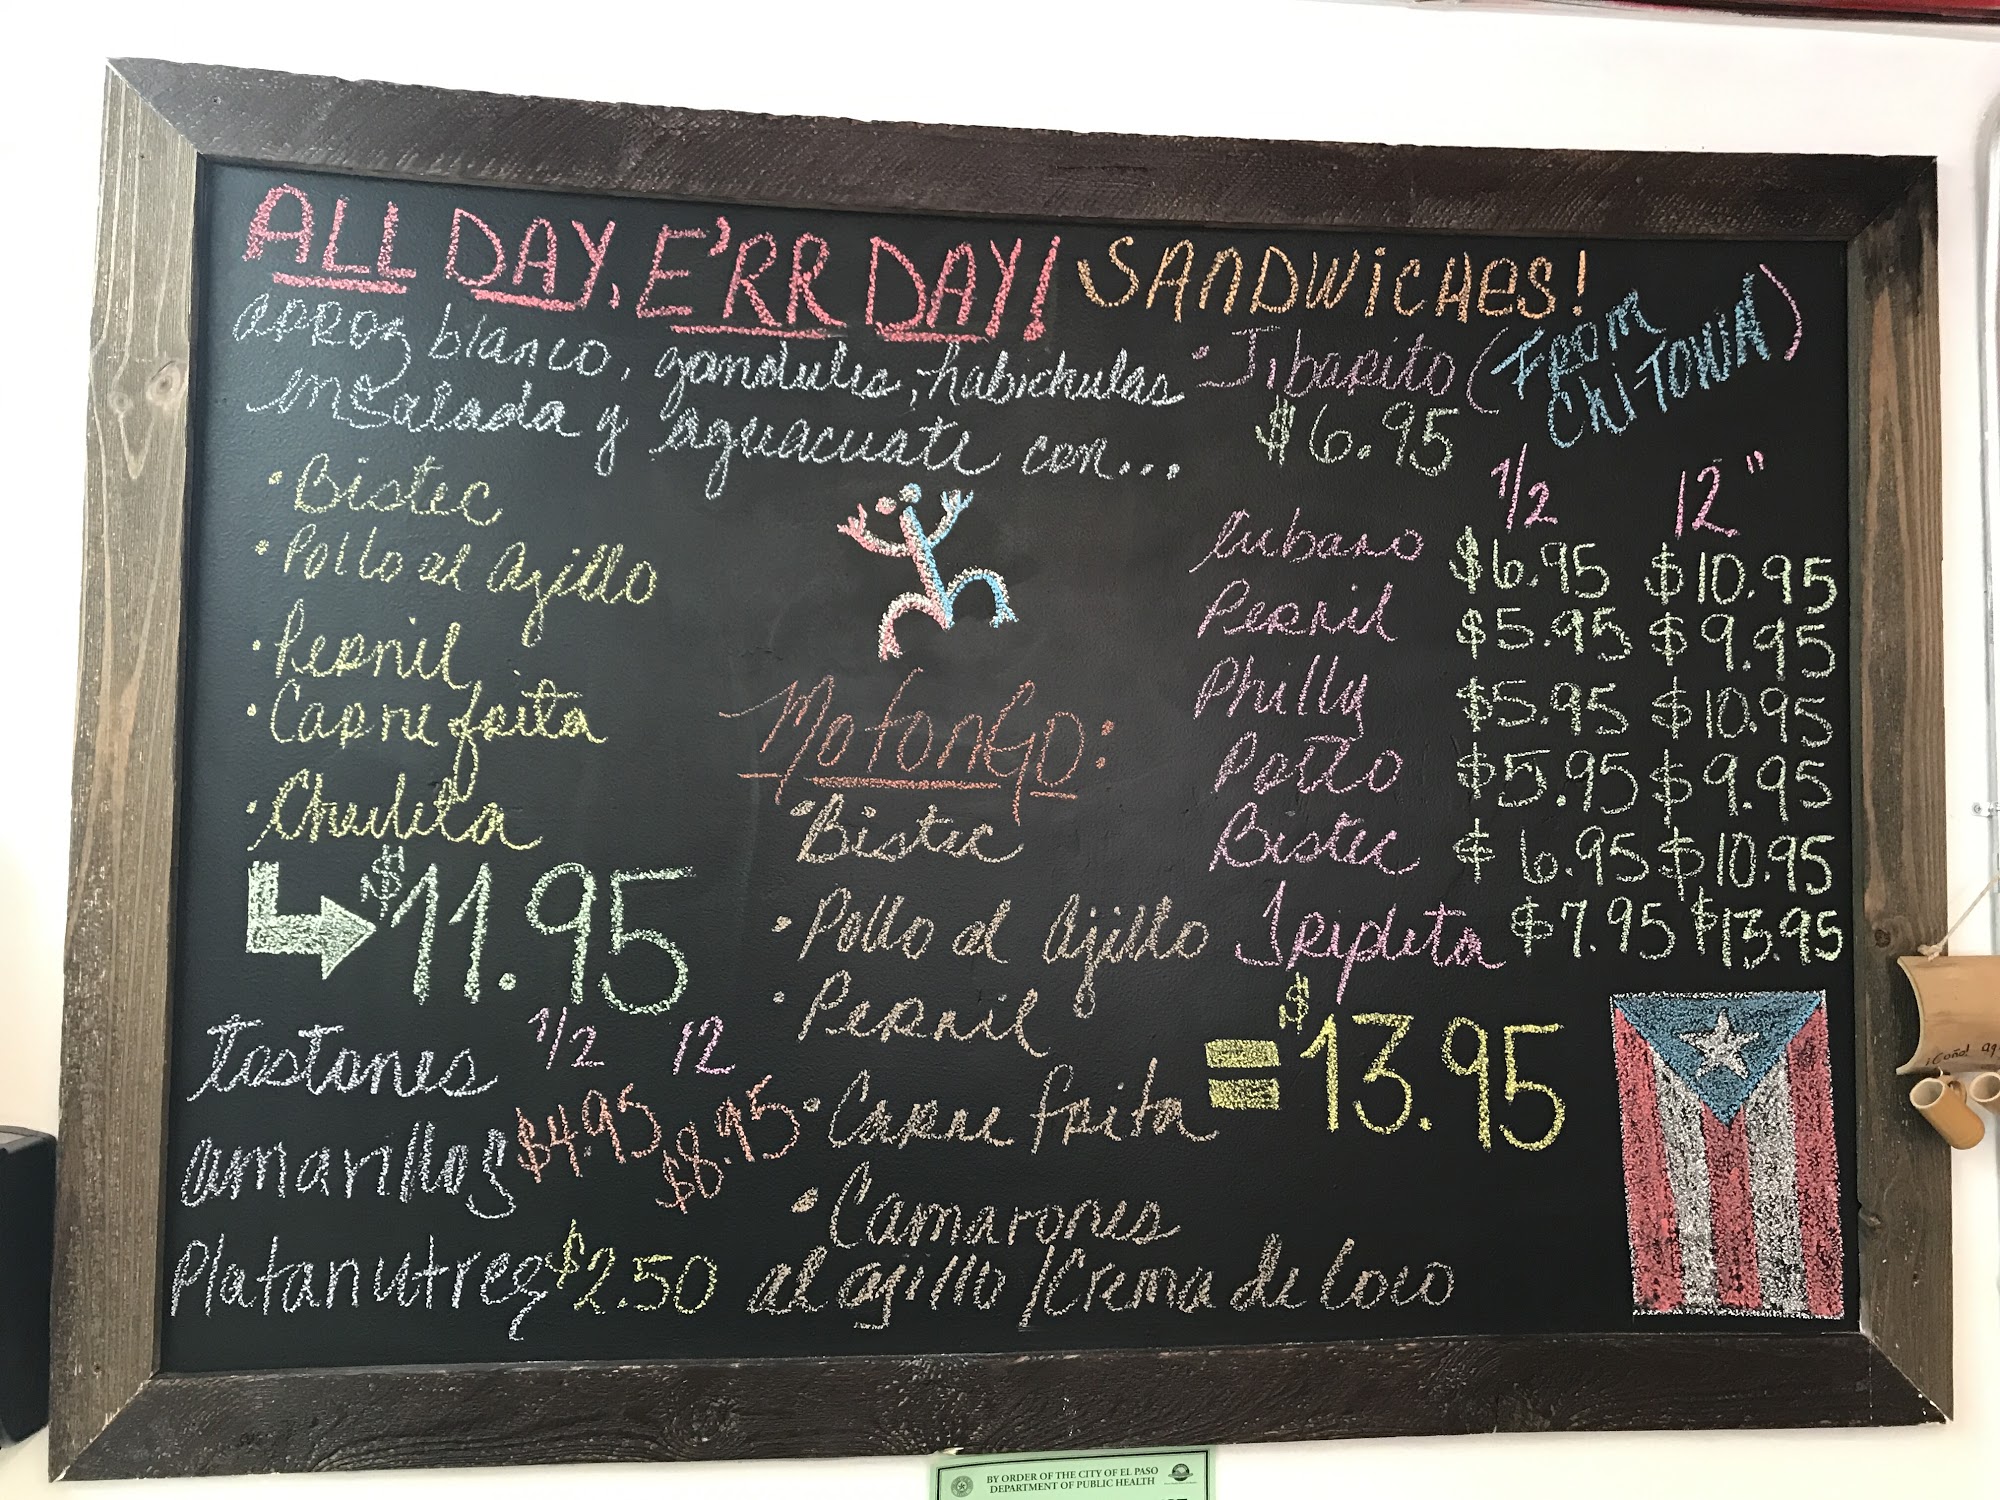 ALL DAY, E'RR DAY!
arroz blanco, gandules, habichulas
ensalada y aguacate con...
• Bistec
• Pollo al Ajillo
• Pernil
• Carne frita
• Chuleta
$11.95
tostones 1/2 12
amarillos $4.95 $8.95
Platanutres $2.50
Mofongo:
• Bistec
• Pollo al Ajillo
• Pernil
• Carne frita
• Camarones
al ajillo / Crema de Coco
= $13.95
SANDWICHES!
• Jibarito (From Chi-TOWN)
$6.95
1/2 12"
Cubano $6.95 $10.95
Pernil $5.95 $9.95
Philly $5.95 $10.95
Pollo $5.95 $9.95
Bistec $6.95 $10.95
Tripleta $7.95 $13.95
BY ORDER OF THE CITY OF EL PASO
DEPARTMENT OF PUBLIC HEALTH